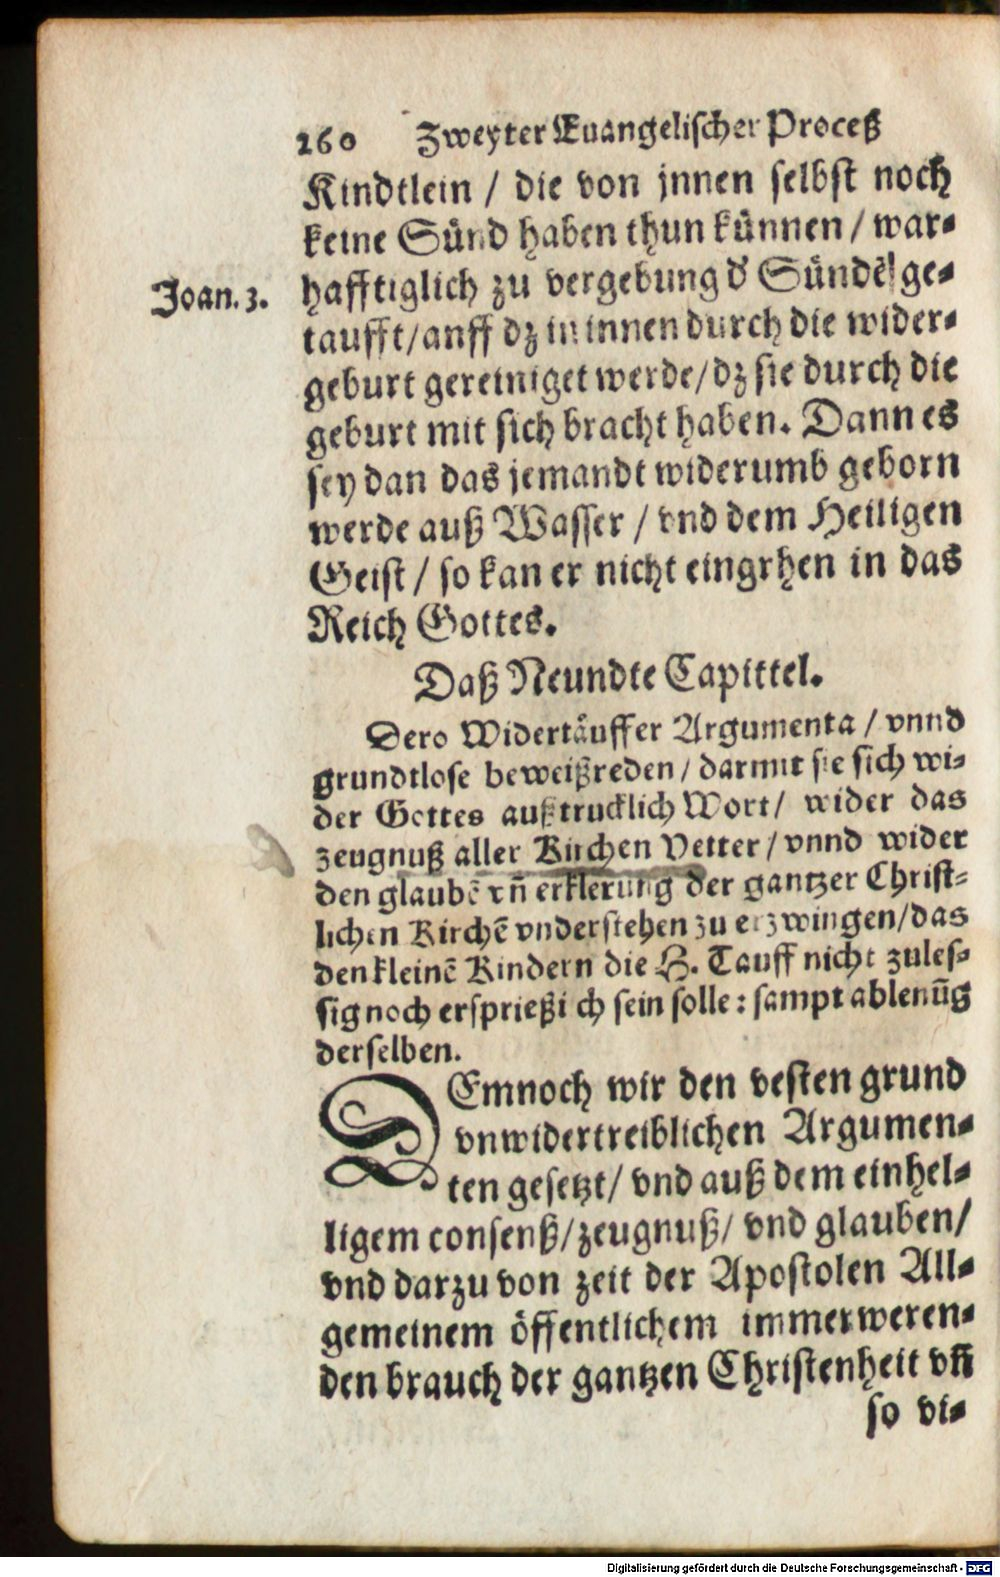 260 Zweyter Euangelischer Proceß
Kindtlein / die von jnnen selbst noch
keine Sünd haben thun künnen / war-
Joan. 3.
hafftiglich zu vergebung d' Sündẽ ge-
taufft/anff dz in innen durch die wider-
geburt gereiniget werde/dz sie durch die
geburt mit sich bracht haben. Dann es
sey dan das jemandt widerumb geborn
werde auß Wasser / vnd dem Heiligen
Geist / so kan er nicht eingrhen in das
Reich Gottes.
Daß Neundte Capittel.
Dero Widertäuffer Argumenta / vnnd
grundtlose beweißreden / darmit sie sich wi-
der Gottes außtrucklich Wort/ wider das
zeugnuß aller Kirchen Vetter / vnnd wider
den glaubẽ vñ erklerung der gantzer Christ-
lichen Kirchẽ vnderstehen zu erzwingen/das
den kleinẽ Kindern die H. Tauff nicht zules-
sig noch ersprießich sein solle : sampt ablenũg
derselben.
DEmnoch wir den vesten grund
vnwidertreiblichen Argumen-
ten gesetzt/ vnd auß dem einhel-
ligem consenß/zeugnuß/ vnd glauben/
vnd darzu von zeit der Apostolen All-
gemeinem öffentlichem immerweren-
den brauch der gantzen Christenheit vñ
so vi-
Digitalisierung gefördert durch die Deutsche Forschungsgemeinschaft - DFG